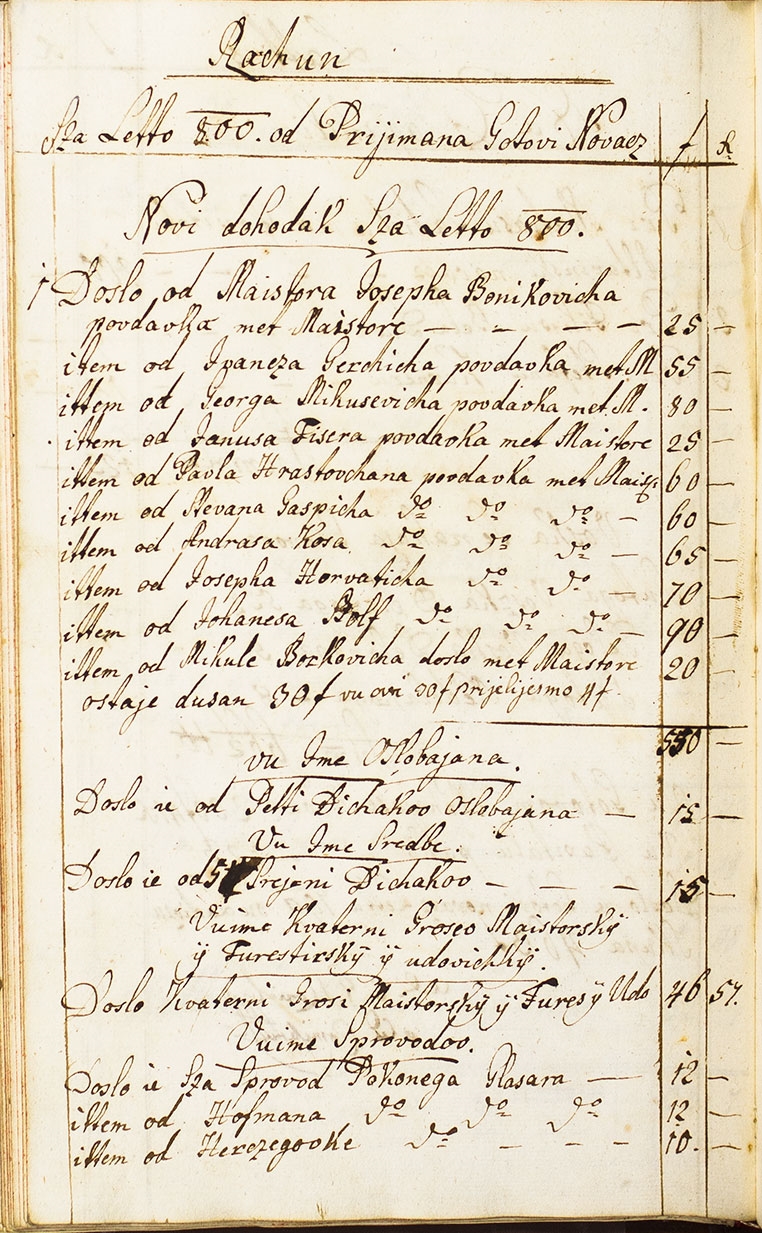 Rachun
Sza Letto 800. od Prijimana Gotovi Novacz f R
Novi dohodak Sza Letto 800.
Doslo od Maistora Josepha Bonikovicha
povdavka met Maistore — — — — 25 —
item od Ivaneza Gerchicha povdavka met M 55 —
ittem od Georga Mikusevicha povdavka met M. 80 —
ittem od Janusa Fisera povdavka met Maistore 25 —
ittem od Pavla Hrastovchana povdavka met Mais: 60 —
ittem od Stevana Gaspicha do do do — 60 —
ittem od Andrasa Kosa do do do — 65 —
ittem od Josepha Horvaticha do do — 70 —
ittem od Johanesa Bolf do do do — 90 —
ittem od Mikule Borkovicha doslo met Maistore 20 —
ostaje dusan 30 f vu ovi 20 f prijelijesmo 4f
550 —
vu Ime Oslobajana.
Doslo ie od Petti Dichakov Oslobajana — 15 —
Vu Ime Sredbe.
Doslo ie od 5 Srejeni Dichakov — — — 15 —
Vuime Kvaterni Grosev Maistorskÿ
ÿ Furestirskÿ ÿ udovichkÿ.
Doslo Kvaterni Grosi Maistorskÿ ÿ Fures ÿ Udo 46 57.
Vuime Sprovodov.
Doslo ie Sza Sprovod Pokonega Glasara — 12 —
ittem od Hofmana do do do 12 —
ittem od Herczegovke do — — — 10. —